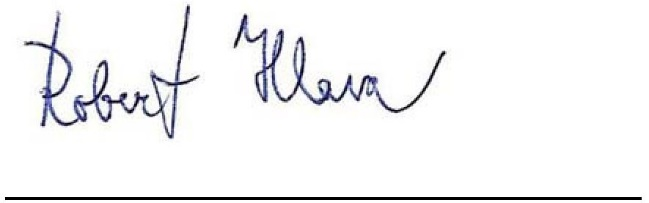 Robert Hlava